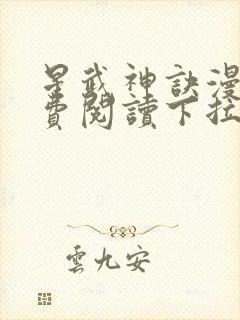 星武神訣漫
費閱讀下拉
雲九安